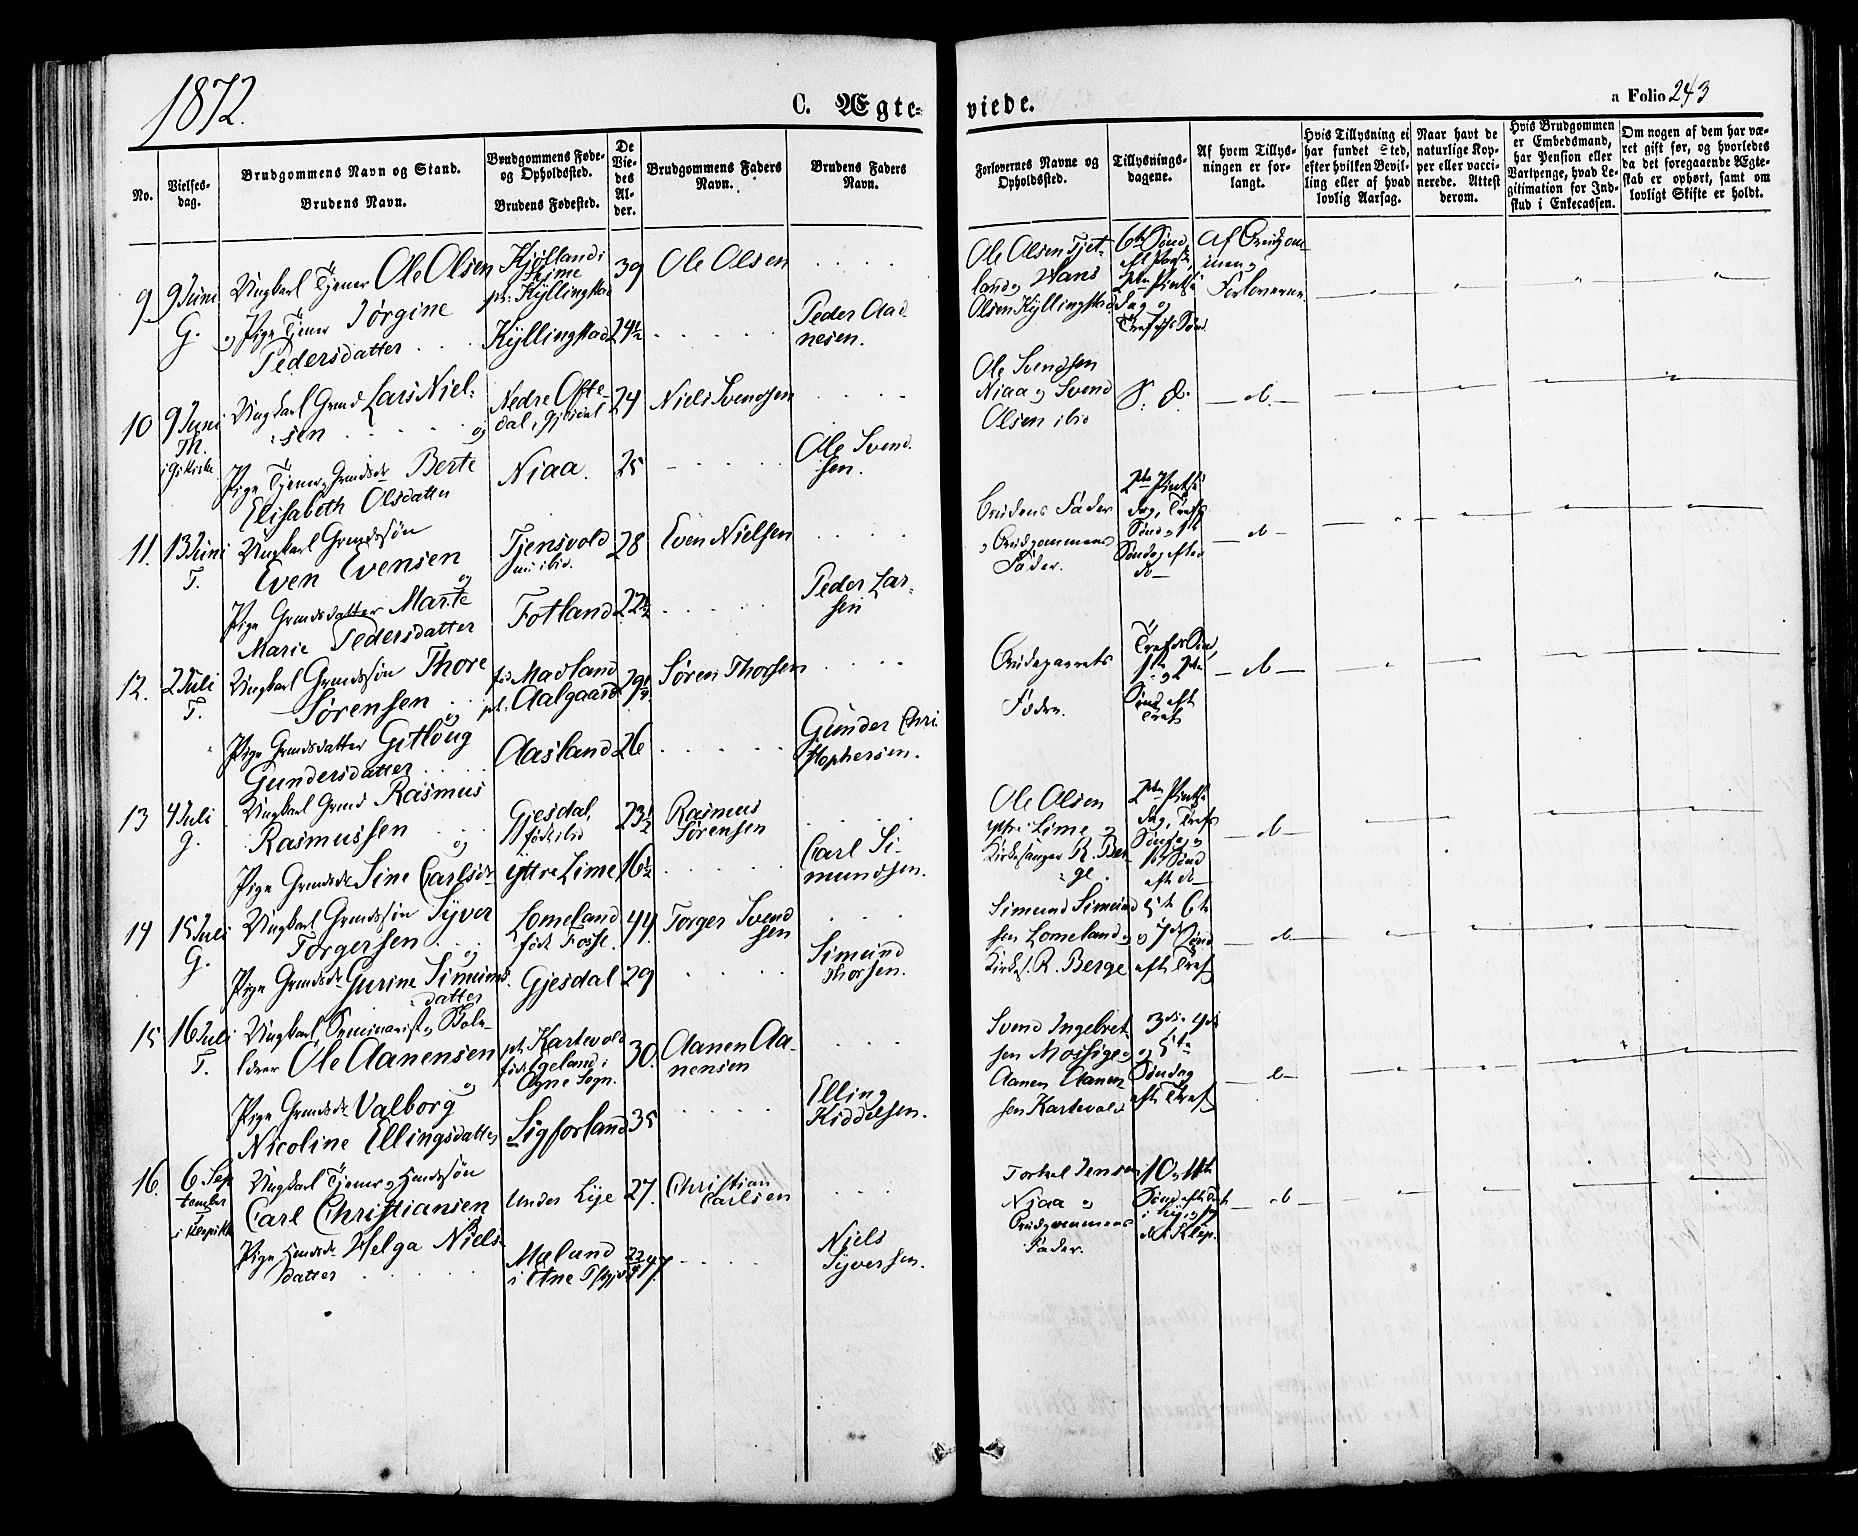 1872.
C. Ægte-
viede.
a Folio 243
No.
Vielses-
dag.
Brudgommens Navn og Stand.
Brudens Navn.
Brudgommens Føde-
og Opholdssted.
Brudens Fødested.
De
Vie-
des
Al-
der.
Brudgommens Faders
Navn.
Brudens Faders
Navn.
Forlovernes Navne og
Opholdssted.
Tillysnings-
dagene.
Af hvem Tillys-
ningen er for-
langt.
Hvis Tillysning ei
har fundet Sted,
efter hvilken Bevil-
ling eller af hvad
lovlig Aarsag.
Naar havt de
naturlige Kop-
per eller vacci-
nerede. Attest
derom.
Hvis Brudgommen
er Embedsmand,
har Pension eller
Vartpenge, hvad Le-
gitimation for Ind-
skud i Enkecassen.
Om nogen af dem har væ-
ret gift før, og hvorledes
da det foregaaende Ægte-
skab er ophørt, samt om
lovligt Skifte er holdt.
9 9 Juni
G.
Ungkarl Tjener Ole Olsen
og Pige Tjener Jørgine
Pedersdatter
Kyllingstad
39
24½
Ole Olsen
Peder Aad
nesen.
Ole Olsen Tjet-
land og Hans
Olsen Kyllingstad
6te Sønd.
Dag og
Af Brudgom-
men og
Forloverne
10 9 Juni
Th.
Ungkarl Grmd Lars Niel-
sen og
Pige Tjener, Grmdsdr Berte
Elisabeth Olsdatter
Nedre Ofte-
dal i Gjesdal
Niaa.
24
25
Niels Svendsen
Ole Svend
sen.
Ole Svendsen
Niaa og Svend
Olsen ibid
S. D.
do
11. 13 Juni
T.
Ungkarl Grmdssøn
Even Evensen
og
Pige Grmdsdatter Marte
Marie Pedersdatter
Tjensvold
Fotland
28
22½
Even Nielsen
Peder Lar-
sen
Brudens Fader
og Brudgommens
Fader.
do
12. 2 Juli
T.
Ungkarl Grmdssøn Thore
Sørensen
og
Pige Grmdsdatter Gitloug
Gundersdatter
fød Madland
pt. Aalgaard
Aasland
29½
26
Søren Thorsen
Gunder Chri
stophersen.
Brudeparrets
Fædre.
do
13 4 Juli
G.
Ungkarl Grmd Rasmus
Rasmussen
og
Pige Grmdsdr Sine Carlsdr
Gjesdal,
født ibid
Yttre Lime
23½
16½
Rasmus
Sørensen
Carl Si-
mundsen.
Ole Olsen
yttre Lime og
Kirkesanger R. Ber-
ge.
do
14 15 Juli
G.
Ungkarl Grmdssøn Syver
Torgersen
og
Pige Grmdsdr Gurine Simunds
datter
Lomeland
født Fosse.
Gjesdal
44
29
Torger Svend
sen
Simund
Thorsen.
Simund Simund
sen Lomeland og
Kirkes. R. Berge
5te 6te
og 7de Sønd
efter Tref
do
15 16 Juli
T.
Ungkarl, Seminarist og Skole-
lærer Ole Aanensen
og
Pige Grmdsdr Valborg
Nicoline Ellingsdatter
pt. Kartevold
født Egeland i
Ogne Sogn.
Sigforland
30.
35
Aanen Aa-
nensen
Elling
Kiddelsen.
Svend Ingebret
sen Mossige og
Aanen Aanen
sen Kartevold
3die 4de
og 5te
Søndag
efter Tref
do
16. 6 Sep
tember
T.
Ungkarl Tjener og Huusmssøn
Carl Christiansen
Pige Huusmdr Helga Niels-
datter
Under Lye
Mælund
i Etne
27.
Christian
Carlsen
Niels
Syversen.
Torkel Jensen
Niaa og
Brudgommens
Fader.
10 og 11te
Sønd efter Tref
i Lye og
do